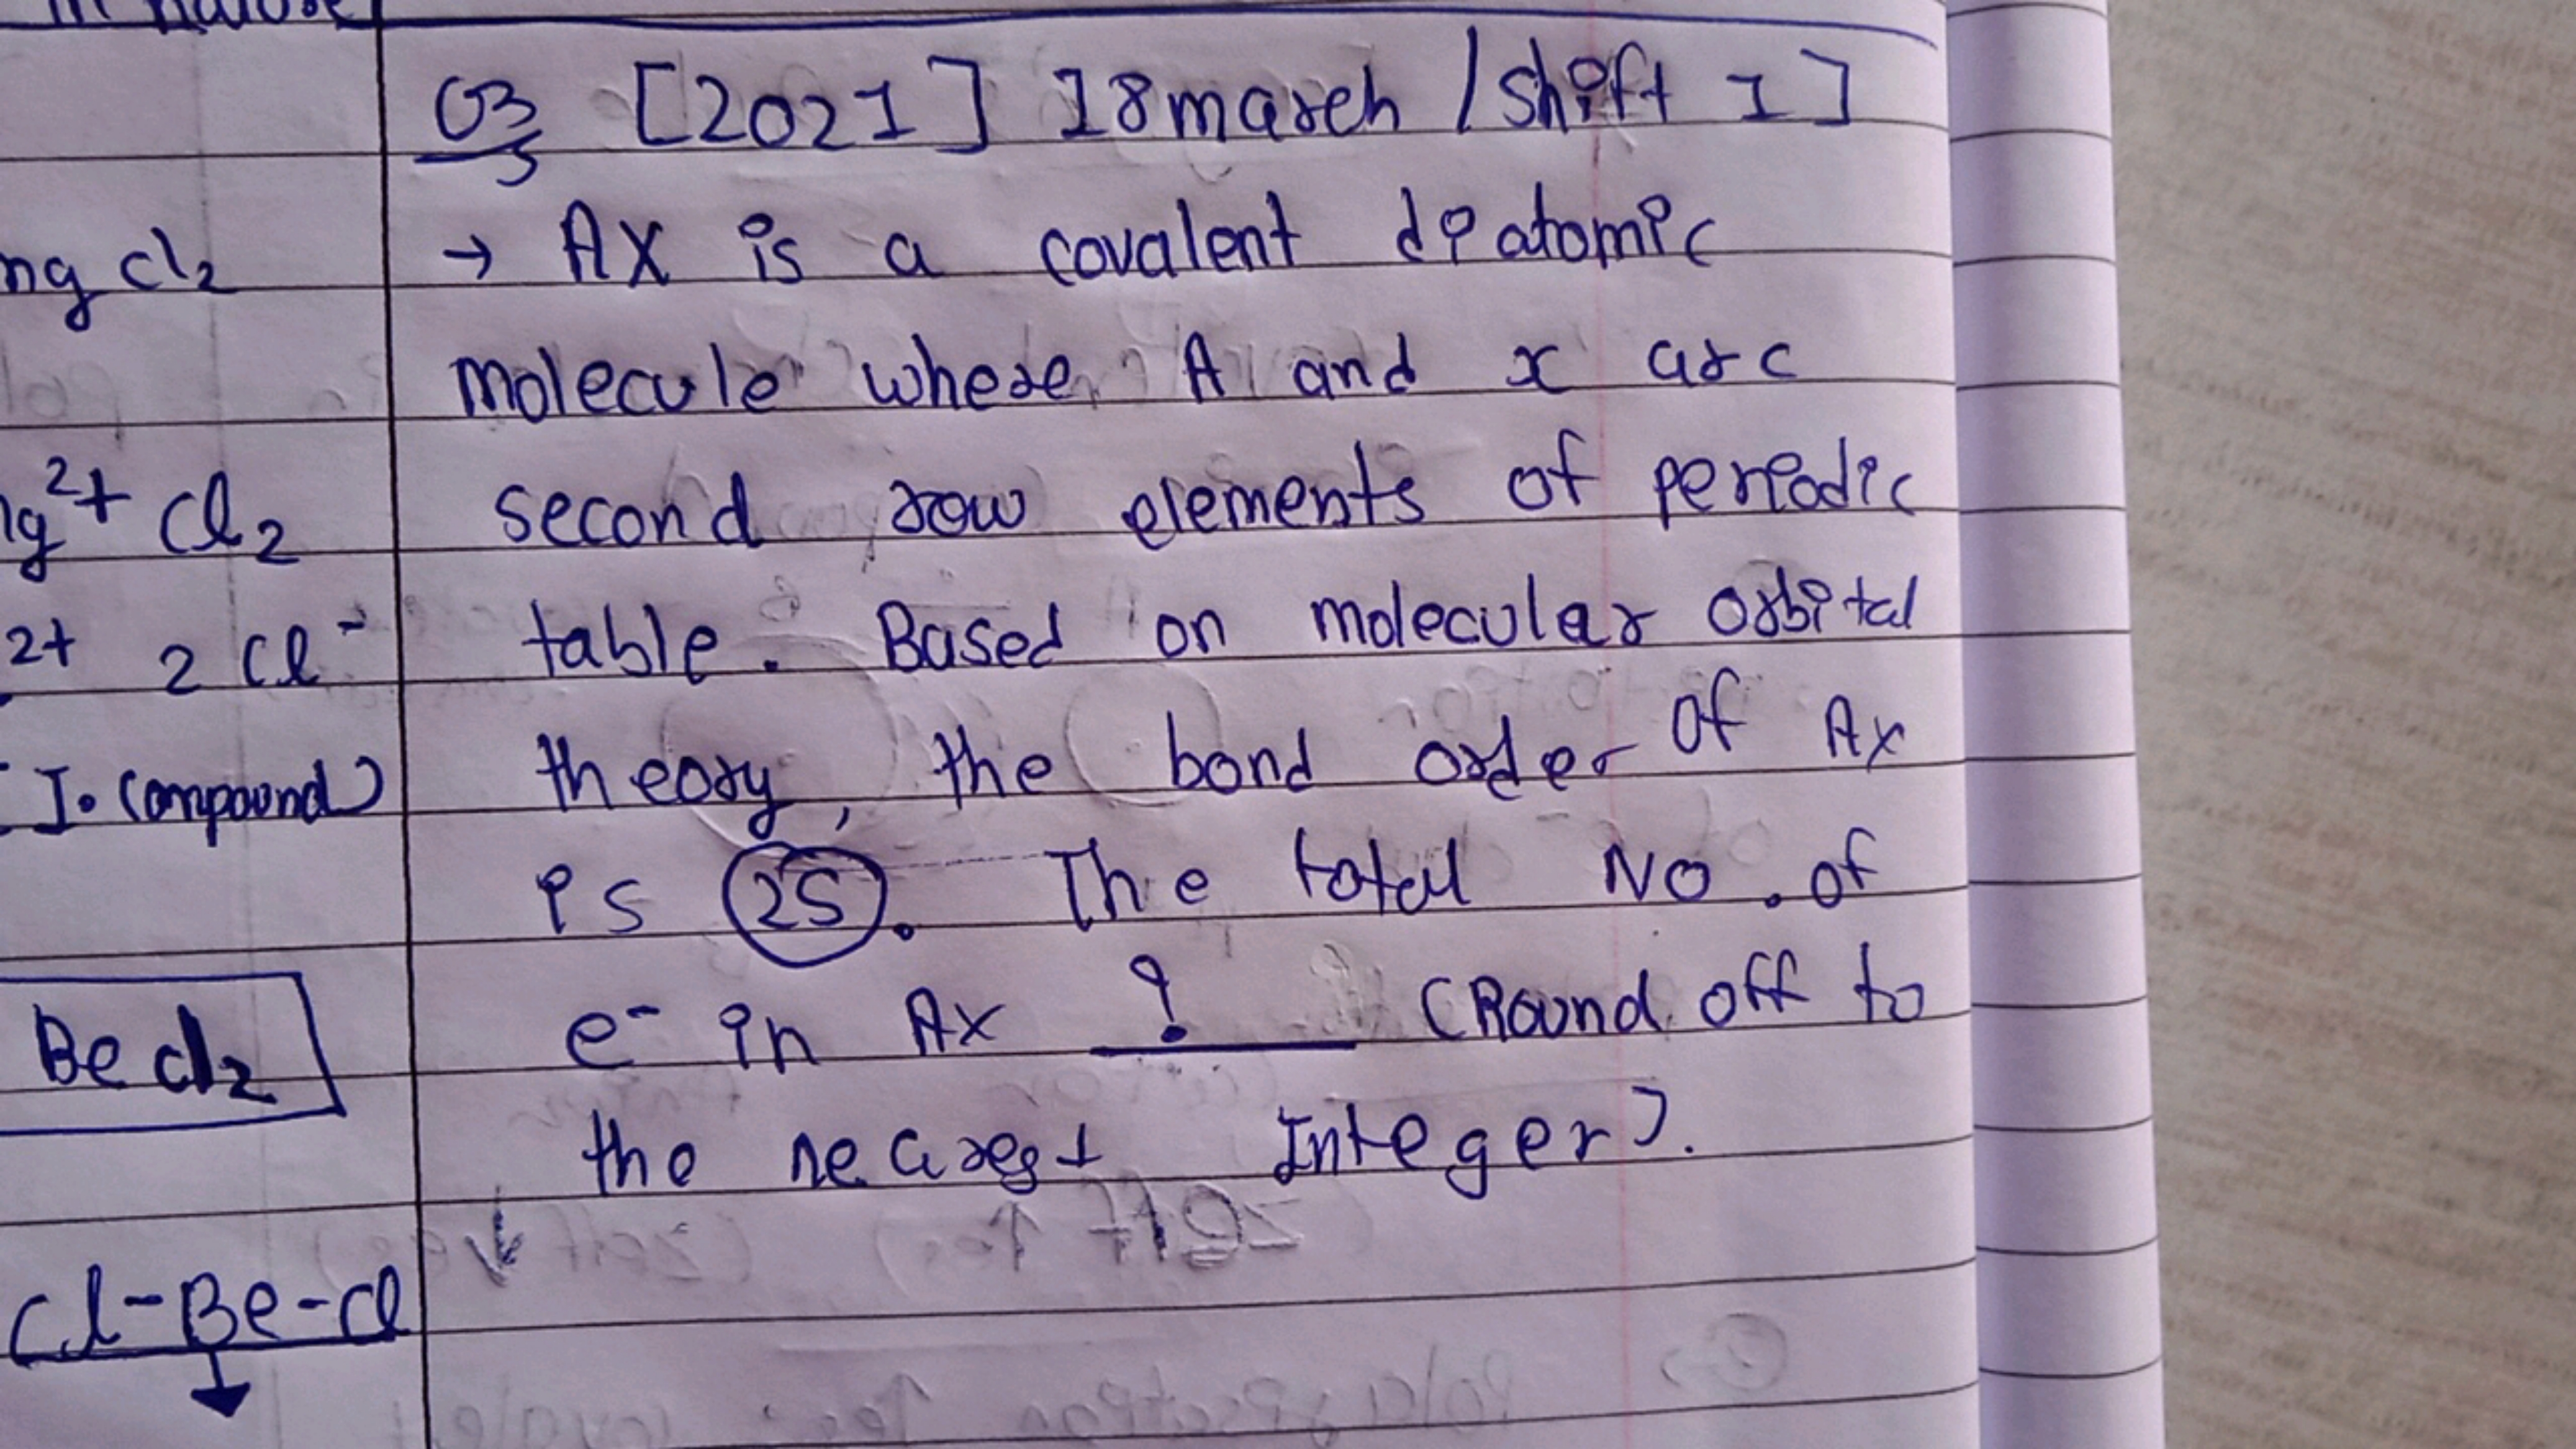 mg cl2
mg2+ Cl2
2+ 2 Cl-
I. Compound)
Be cl2
Cl-Be-Cl
Q3 [2021] 18 march / Shift 1]
→ AX is a covalent diatomic
molecule where A and x are
second row elements of periodic
table. Based on molecular orbital
theory, the bond order of Ax
is 25. The total No. of
e- in Ax ? (Round off to
the nearest Integer).